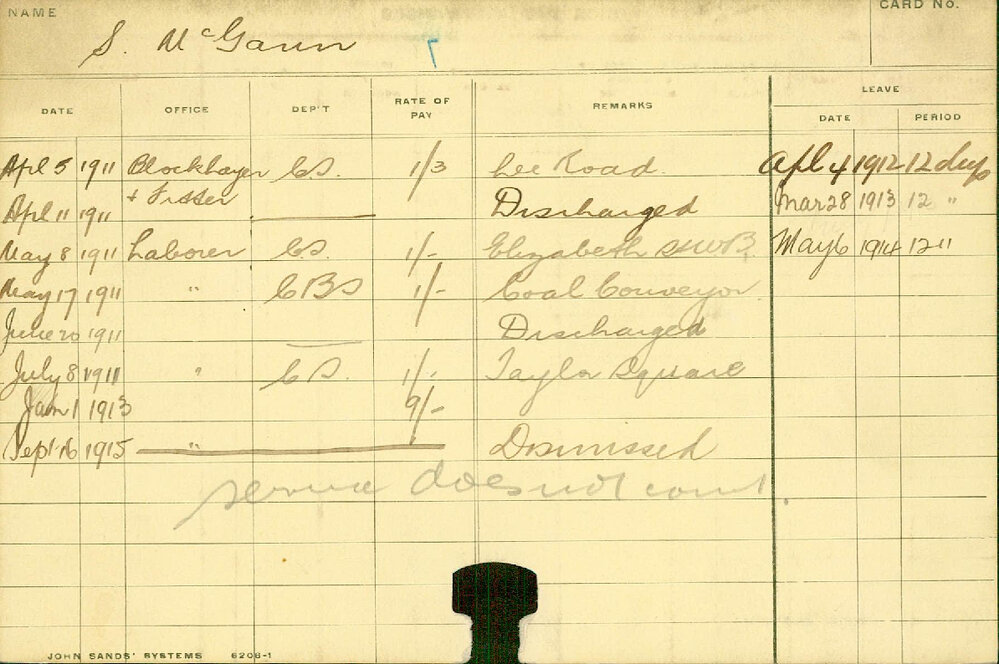 NAME
CARD No.
S. McGann
DATE OFFICE DEP'T RATE OF PAY REMARKS LEAVE
DATE PERIOD
Apl 5 1911 Blocklayer C.S. 1/3 Lee Road Apl 4 1912 12 days
+ Fixer
Apl 11 1911 Discharged Mar 28 1913 12 "
May 8 1911 Laborer C.S. 1/- Elizabeth May 6 1914 12 "
May 17 1911 " C B S 1/- Coal Conveyor
June 20 1911 Discharged
July 8 1911 " C S. 1/- Taylor Square
Jan 1 1913 9/-
Sept 16 1915 " Dismissed
service does not count.
JOHN SANDS' SYSTEMS 6206-1